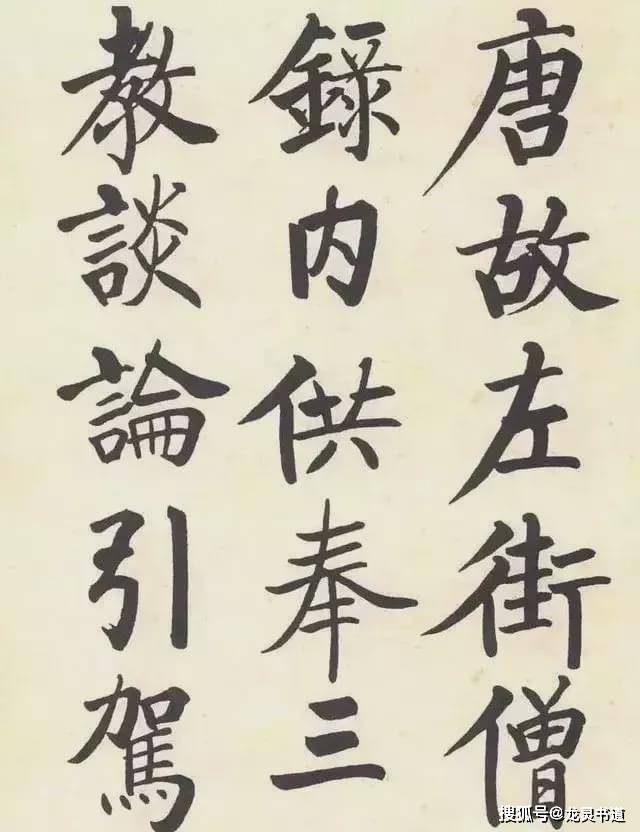 唐故左街僧
錄内供奉三
教談論引駕
搜狐号@龙灵书道